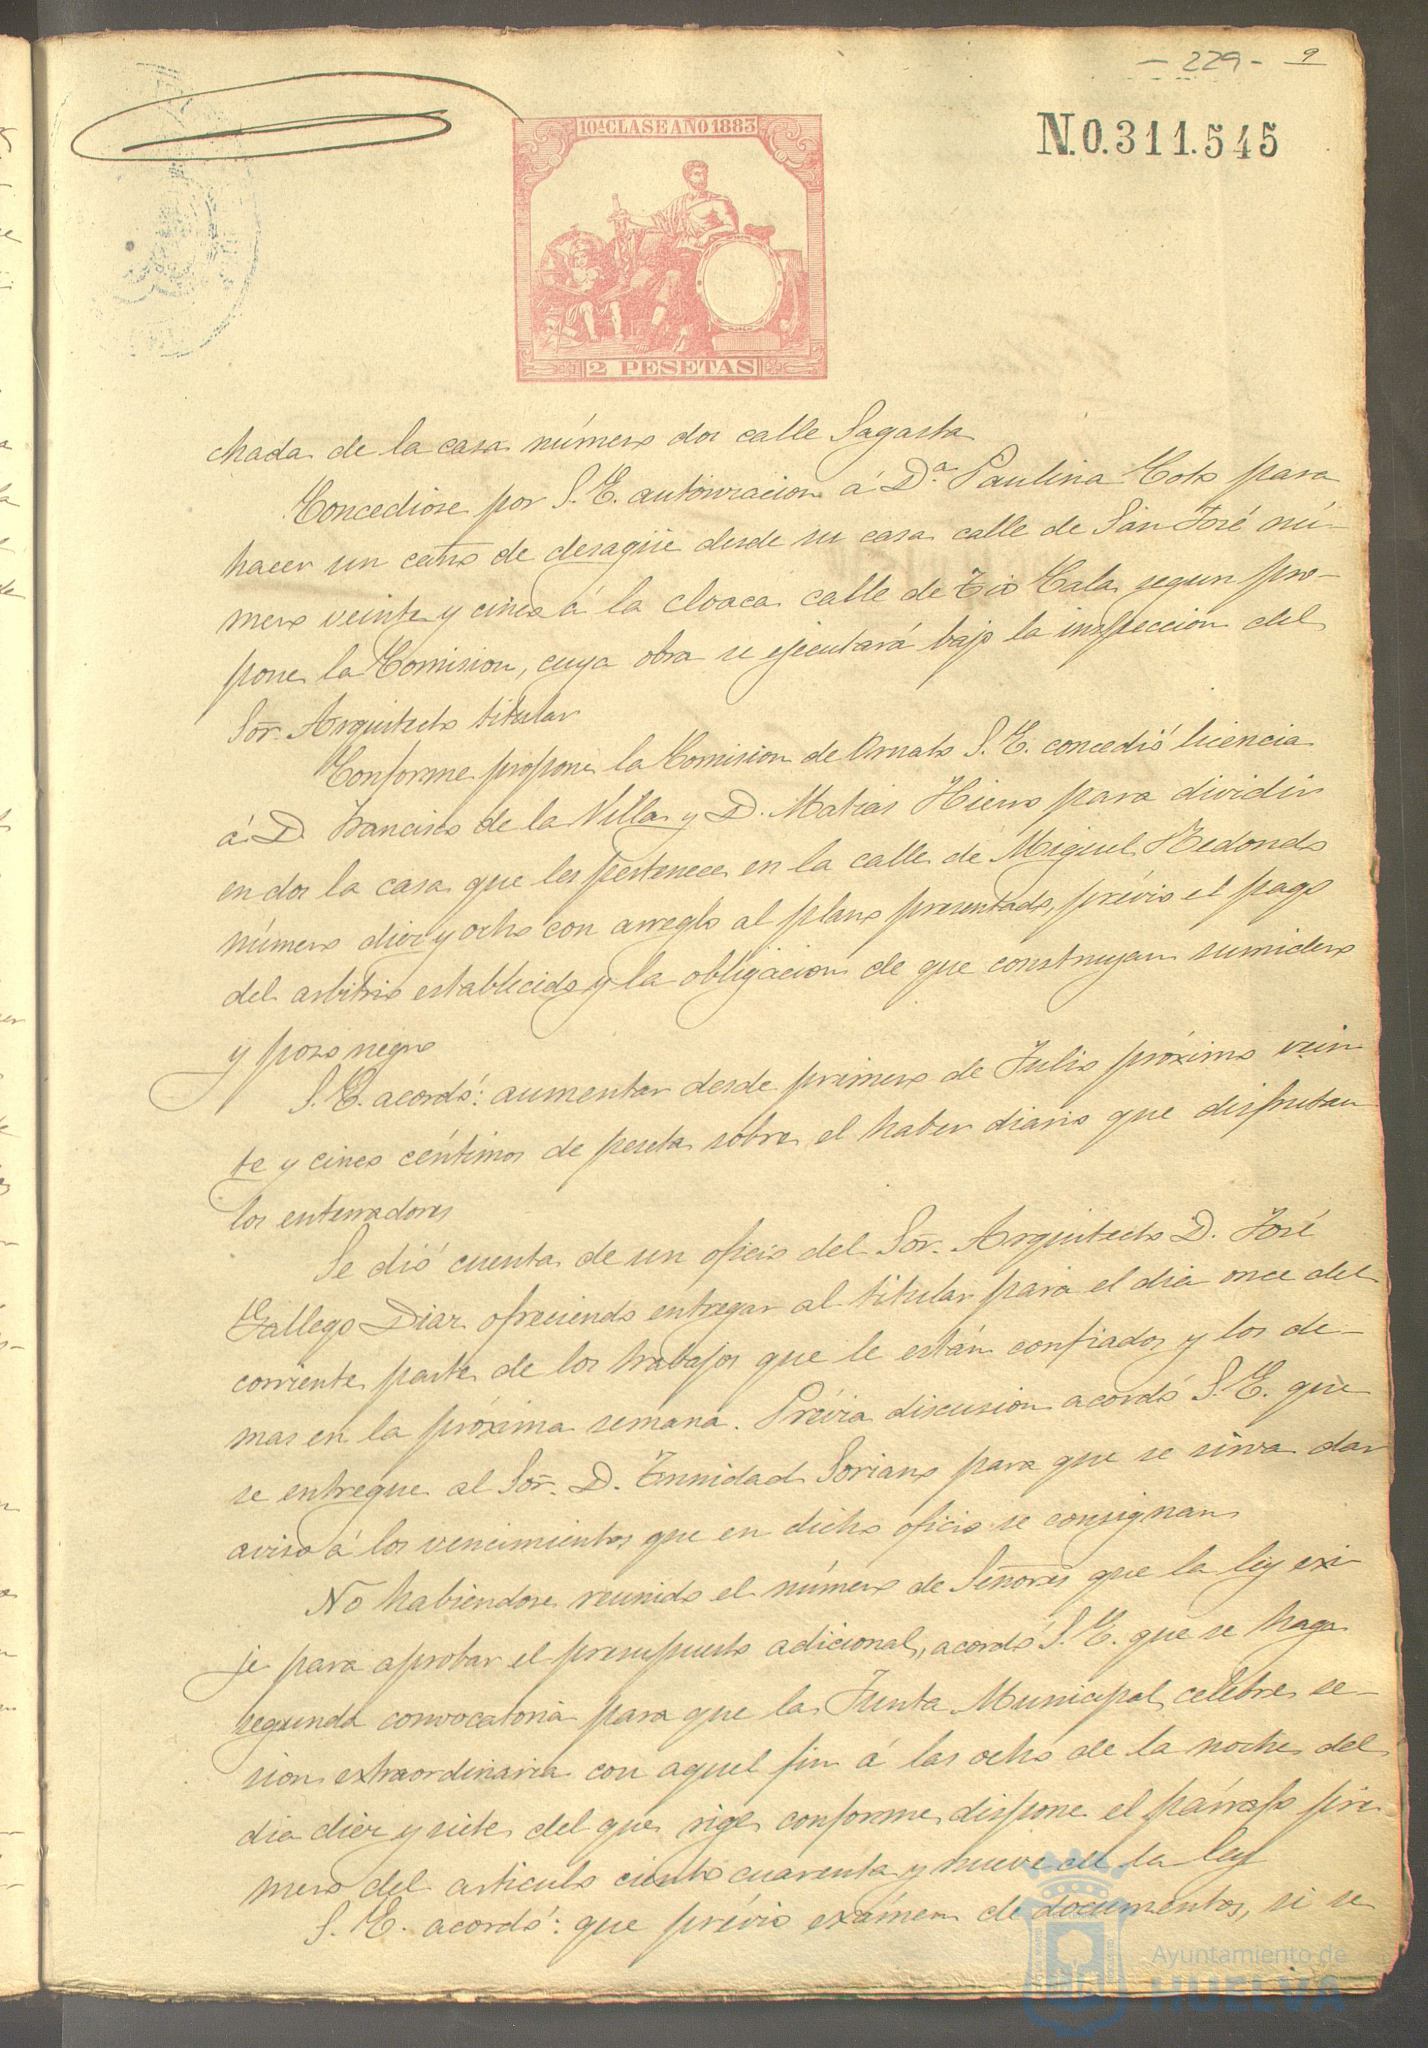 - 229 - 9
10ª CLASE AÑO 1883
N.0.311.545
2 PESETAS
chada de la casa número dos calle Sagasta
Concediose por S.E. autorizacion á D.ª Paulina Coto para
hacer un caño de desagüe desde su casa calle de San José nú-
mero veinte y cinco á la cloaca calle de Tio Cala segun pro-
pone la Comision, cuya obra se ejecutará bajo la inspeccion del
Sor. Arquitecto titular
Conforme propone la Comision de Ornato S.E. concedió licencia
á D. Francisco de la Villa y D. Matias Hierro para dividir
en dos la casa que les pertenece en la calle de Miguel Redondo
número diez y ocho con arreglo al plano presentado, prévio el pago
del arbitrio establecido y la obligacion de que construyan sumidero
y pozo negro
S.E. acordó: aumentar desde primero de Julio próximo vein
te y cinco céntimos de peseta sobre el haber diario que disfrutan
los enterradores
Se dió cuenta de un oficio del Sor. Arquitecto D. José
Gallego Diaz ofreciendo entregar al titular para el dia once del
corriente parte de los trabajos que le están confiados y los de-
mas en la próxima semana. Prévia discusion acordó S.E. que
se entregue al Sor. D. Trinidad Soriano para que se sirva dar
aviso á los vencimientos que en dicho oficio se consignan
No habiendose reunido el número de Señores que la ley exi-
je para aprobar el presupuesto adicional, acordó S.E. que se haga
segunda convocatoria para que la Junta Municipal celebre se-
sion extraordinaria con aquel fin á las ocho de la noche del
dia diez y siete del que rige conforme dispone el párrafo pri-
mero del articulo ciento cuarenta y nueve de la ley
S.E. acordó: que prévio exámen de documentos, si se
Ayuntamiento de
HUELVA